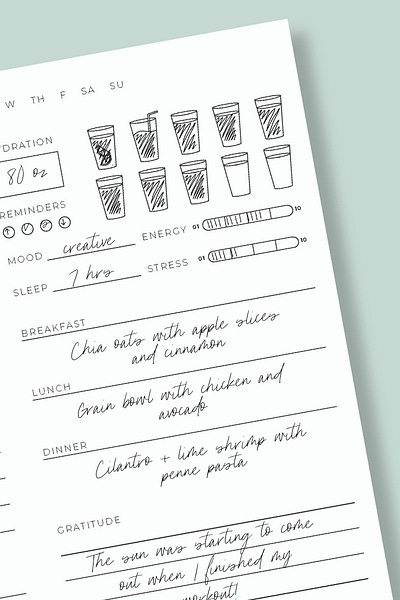 W TH F SA SU
DRATION
80 oz
REMINDERS
MOOD creative ENERGY 01 10
SLEEP 7 hrs STRESS 01 10
BREAKFAST
Chia oats with apple slices
and cinnamon
LUNCH
Grain bowl with chicken and
avocado
DINNER
Cilantro + lime shrimp with
penne pasta
GRATITUDE
The sun was starting to come
out when I finished my
workout!